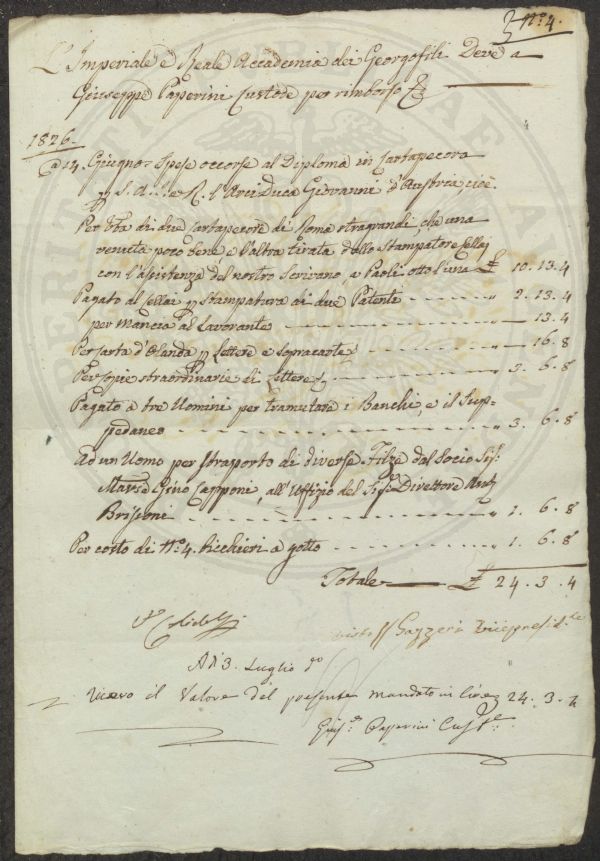 N.º 4.
L'Imperiale e Reale Accademia dei Georgofili Deve a
Giuseppe Paperini Custode per rimborso
1826.
a 14. Giugno = Spese occorse al Diploma in Cartapecora
S. A. I. e R. l'Arciduca Giovanni d'Austria, cioè.
Per di due Cartapecore di Roma stragrandi, che una
venuta poco bene e l'altra tirata dallo stampatore Sellaj
con l'assistenza del nostro Scrivano, a Paoli otto l'una £ 10.13.4
Pagato al Sellai stampatura di due Patenti " 2.13.4
per Mancia al Lavorante — 13.4
Per Carta d'Olanda Lettere e Sopracarte — 16.8
Per Copie straordinarie di Lettere " 3. 6.8
Pagato a tre Uomini per tramutare i Banchi, e il Sup=
pedaneo " 3. 6.8
Ad un Uomo per straporto di diverse Filze dal Socio Sig.
March. Gino Capponi, all'Uffizio del Sig. Direttore
" 1. 6.8
Per costo di N.º 4. bicchieri a gotto " 1. 6.8
Totale £ 24.3.4
Visto Gazzeri Vicepresid.te
A dì 3. Luglio d.º
ricevo il Valore del presente mandato in Lire 24.3.4
Gius.e Paperini Cust.e